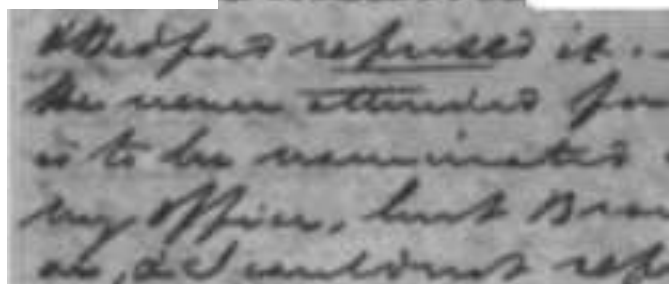 Bedford refused it. -
He never attended for
is to be renominated
my office, but Bra
as, & I could not ref